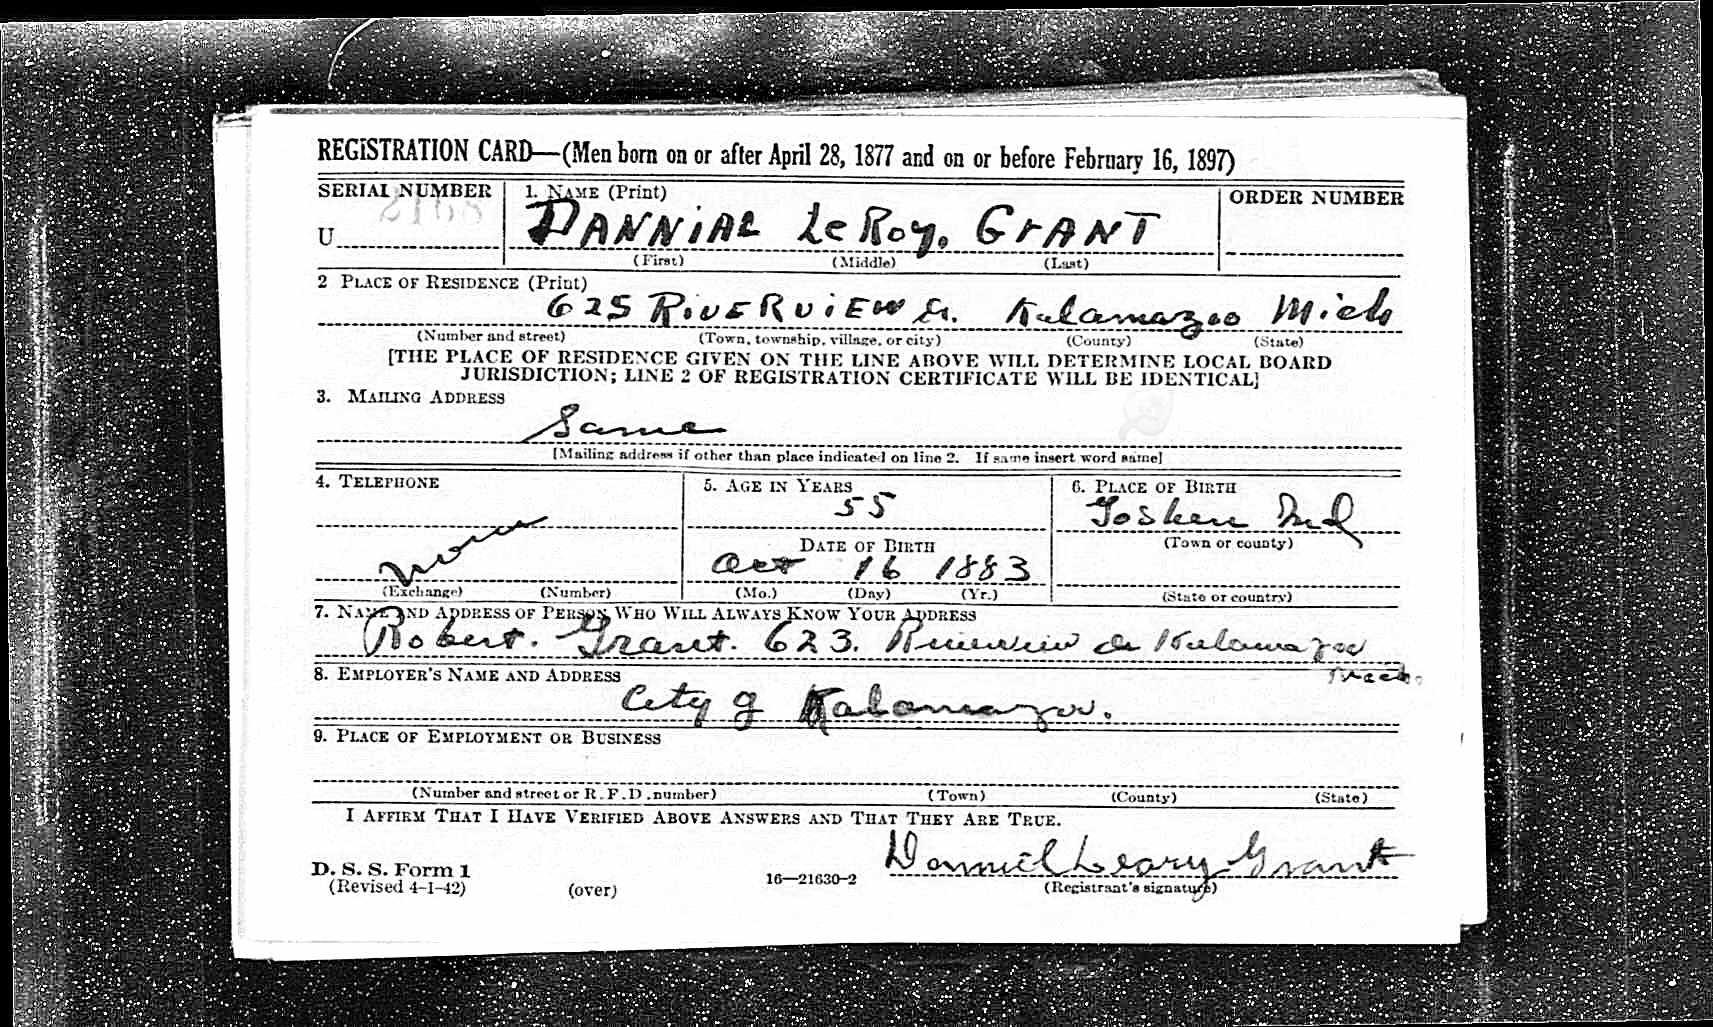 REGISTRATION CARD—(Men born on or after April 28, 1877 and on or before February 16, 1897)
SERIAL NUMBER 1. NAME (Print) ORDER NUMBER
U DANNIAL LeRoy. GrANT
(First) (Middle) (Last)
2 PLACE OF RESIDENCE (Print)
625 RiVERViEW Dr. Kalamazoo Mich
(Number and street) (Town, township, village, or city) (County) (State)
[THE PLACE OF RESIDENCE GIVEN ON THE LINE ABOVE WILL DETERMINE LOCAL BOARD
JURISDICTION; LINE 2 OF REGISTRATION CERTIFICATE WILL BE IDENTICAL]
3. MAILING ADDRESS
Same
[Mailing address if other than place indicated on line 2. If same insert word same]
4. TELEPHONE 5. AGE IN YEARS 6. PLACE OF BIRTH
55 Goshen Ind
(Town or county)
None DATE OF BIRTH
Oct 16 1883
(Exchange) (Number) (Mo.) (Day) (Yr.) (State or country)
7. NAME AND ADDRESS OF PERSON WHO WILL ALWAYS KNOW YOUR ADDRESS
Robert. Grant. 623. Riverview Dr Kalamazoo
Mich.
8. EMPLOYER'S NAME AND ADDRESS
City of Kalamazoo.
9. PLACE OF EMPLOYMENT OR BUSINESS
(Number and street or R.F.D. number) (Town) (County) (State)
I AFFIRM THAT I HAVE VERIFIED ABOVE ANSWERS AND THAT THEY ARE TRUE.
Danniel Leary Grant
D. S. S. Form 1
(Revised 4-1-42) (over) 16—21630-2 (Registrant's signature)